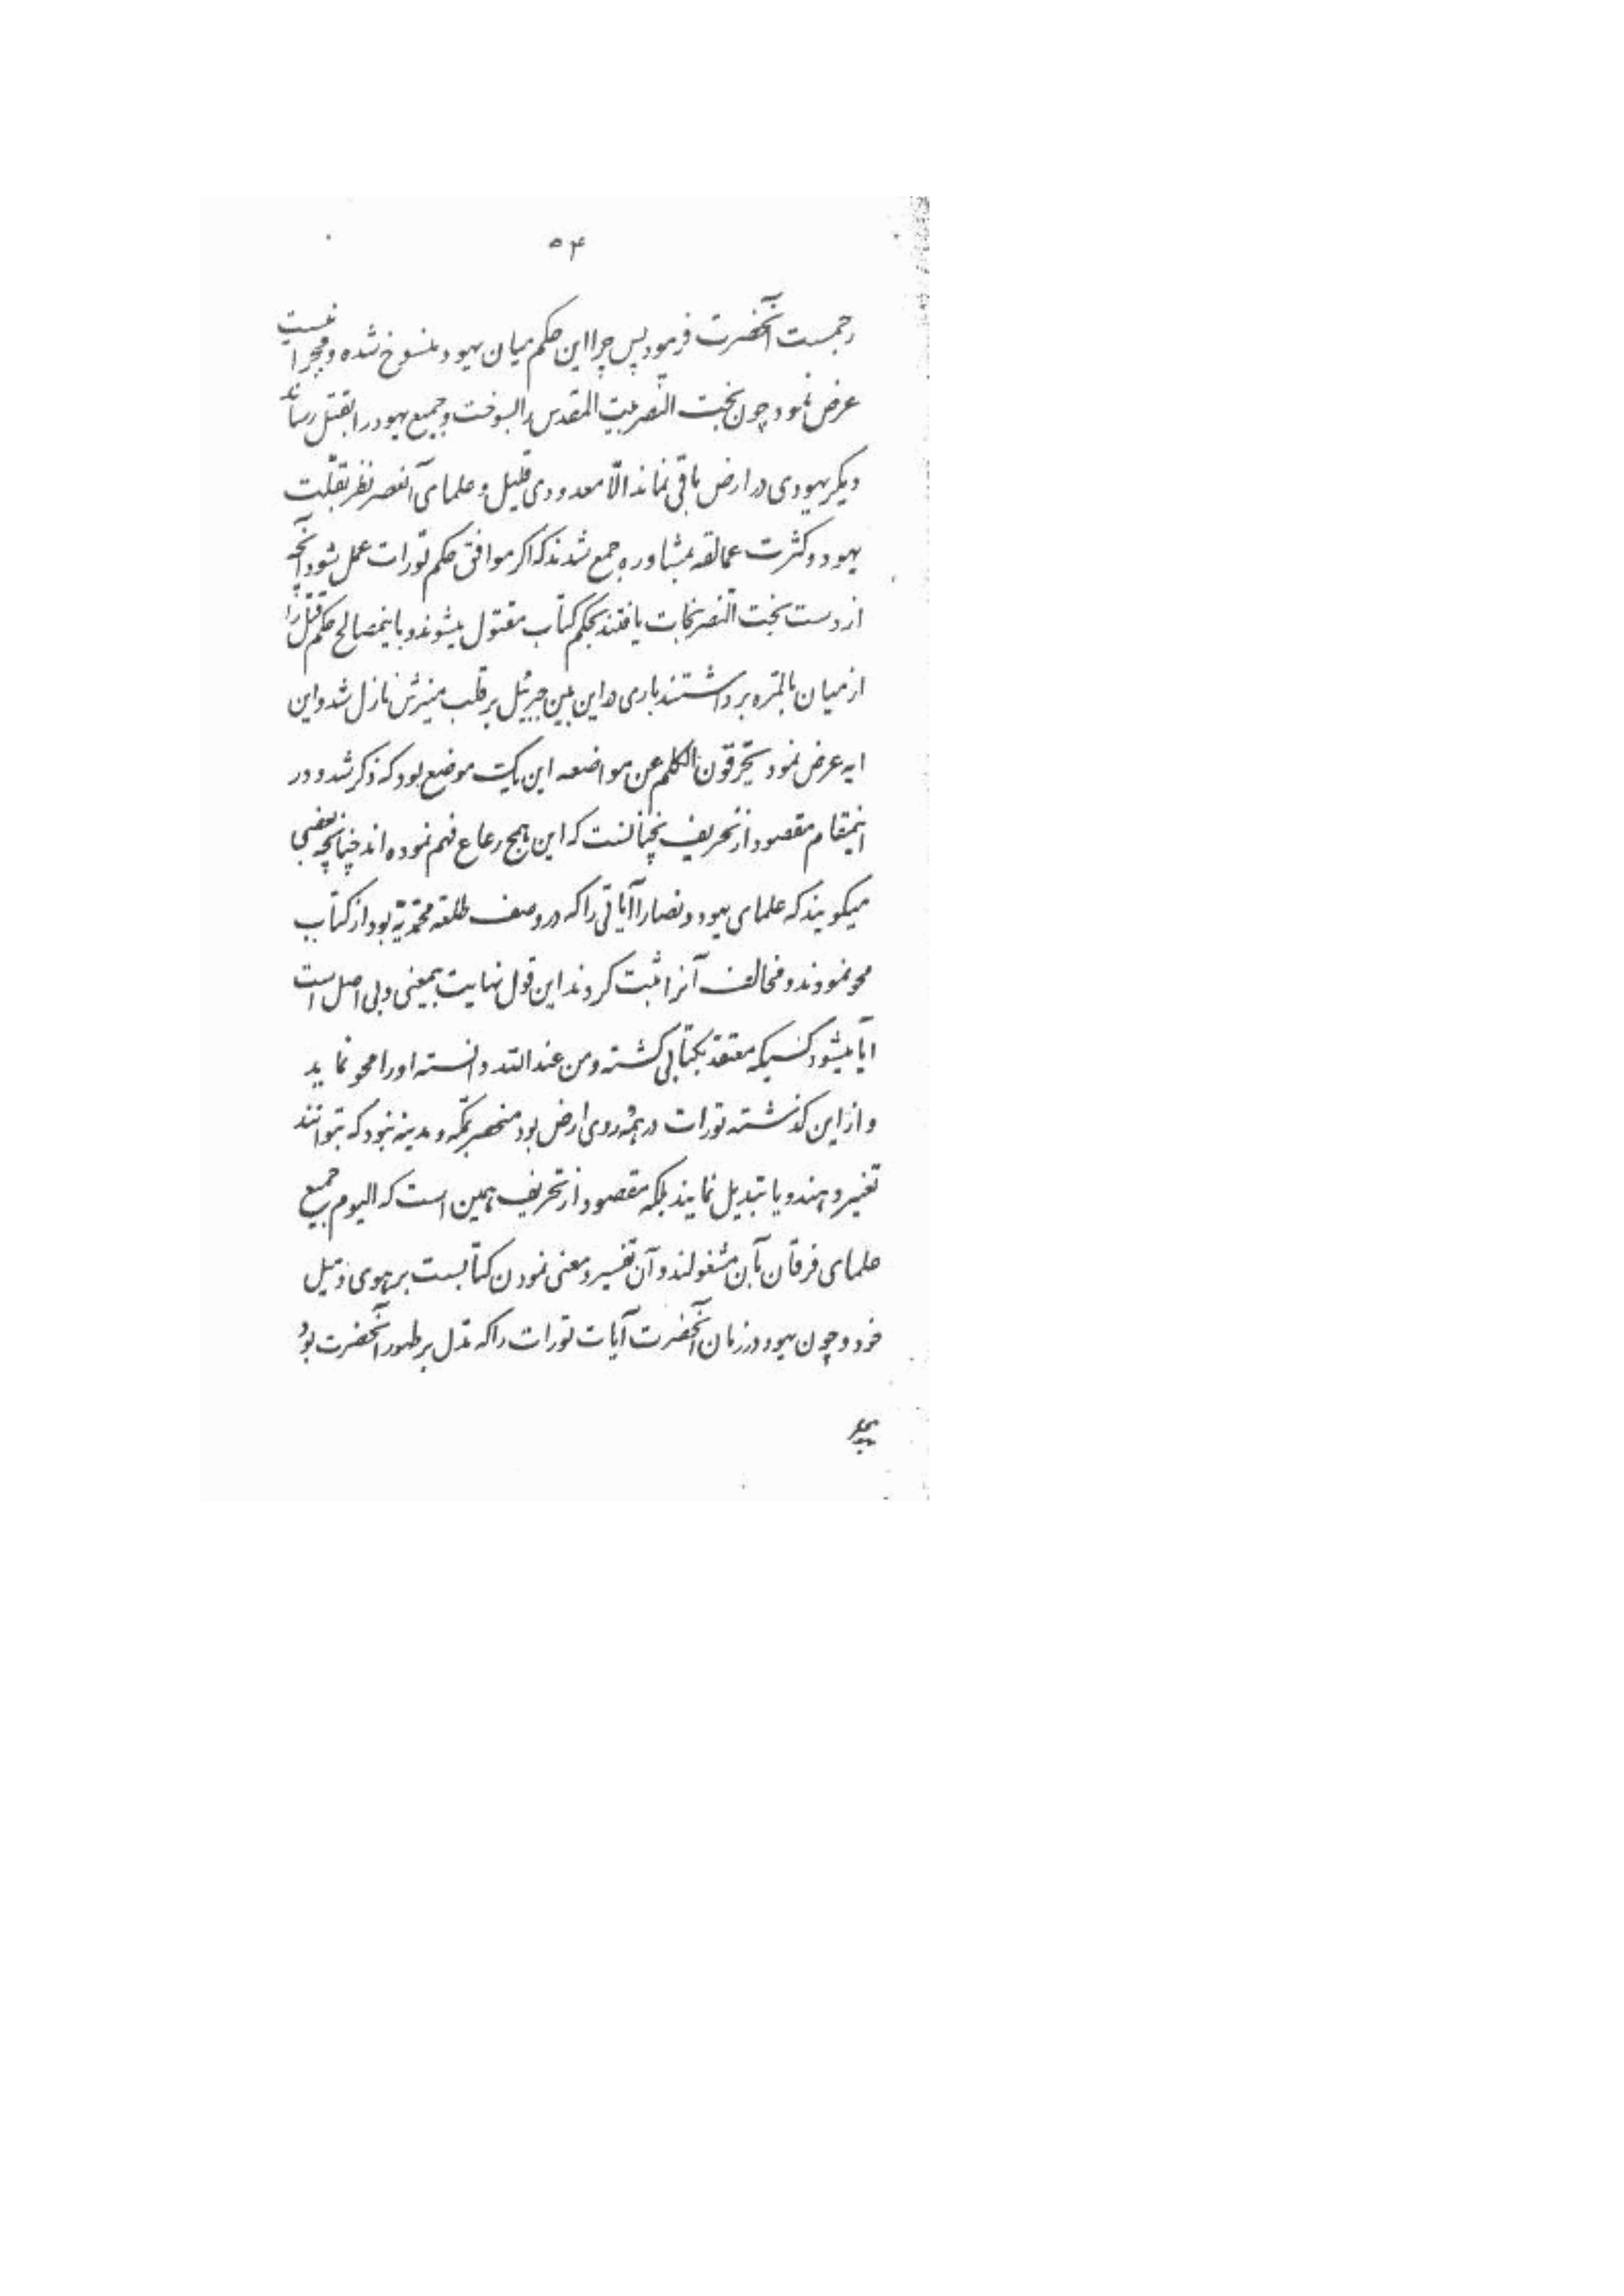 ۵۴
رجمست آنحضرت فرمود پس چرا این حکم میان یهود منسوخ شده و مجرا نیست
عرض نمود چون بخت النصر بیت المقدس را بسوخت و جمیع یهود را بقتل رساند
دیگر یهودی در ارض باقی نماند الّا معدودی قلیل و علمای آنعصر نظر بقلّت
یهود و کثرت عمالقه بمشاوره جمع شدند که اگر موافق حکم تورات عمل شود آنچه
از دست بخت النصر نجات یافتند بحکم کتاب مقتول میشوند و باینمصالح حکم قتل را
از میان بالمرّه برداشتند باری در این بین جبرئیل بر قلب منیرش نازل شد و این
ایه عرض نمود یحرّفون الکلم عن مواضعه این یک موضع بود که ذکر شد و در
اینمقام مقصود از تحریف نچنانست که این همج رعاع فهم نموده‌اند چنانچه بعضی
میگویند که علمای یهود و نصارا آیاتی را که در وصف طلعة محمّدیّه بود از کتاب
محو نمودند و مخالف آنرا ثبت کردند این قول نهایت بیمعنی و بی اصل است
ایا میشود کسیکه معتقد بکتابی گشته و من عند الله دانسته او را محو نماید
و از این گذشته تورات در همهٔ روی ارض بود منحصر بمکّه و مدینه نبود که بتوانند
تغییر دهند و یا تبدیل نمایند بلکه مقصود از تحریف همین است که الیوم جمیع
علمای فرقان بآن مشغولند و آن تفسیر و معنی نمودن کتابست بر هوی و میل
خود و چون یهود در زمان آنحضرت آیات تورات را که مدلّ بر ظهور آنحضرت بود